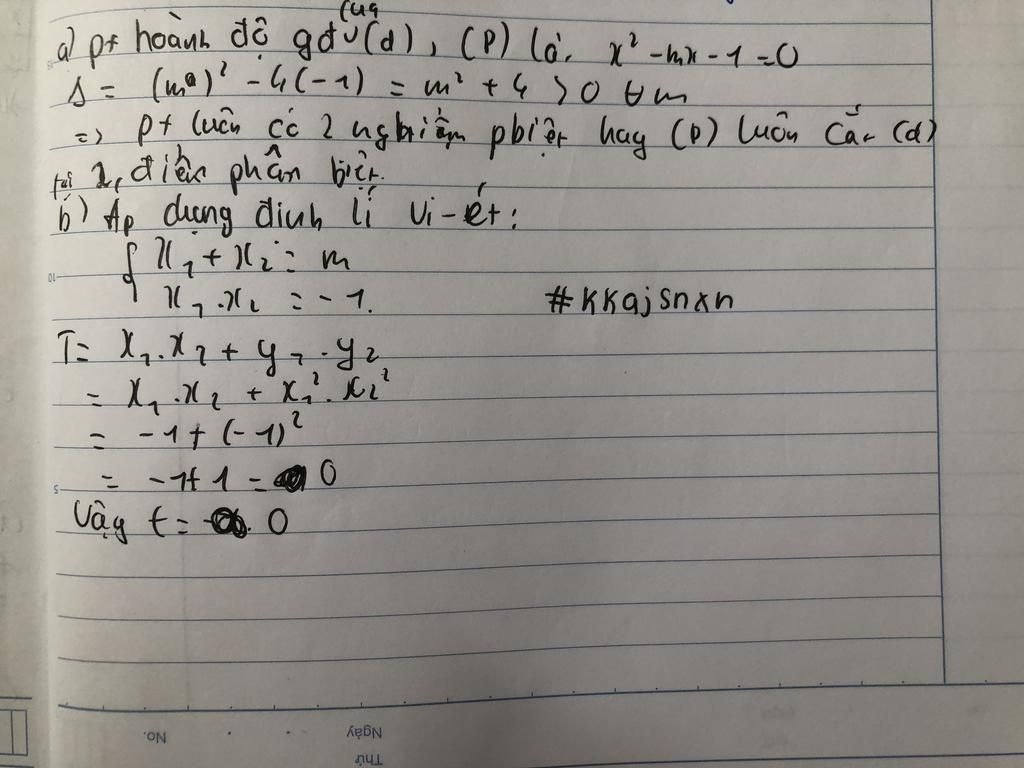 của
a) pt hoành độ gđ (d), (P) là x² - mx - 1 = 0
Δ = (m)² - 4(-1) = m² + 4 > 0 ∀m
=> pt luôn có 2 nghiệm pbiệt hay (P) luôn cắt (d)
tại 2 điểm phân biệt.
b) Áp dụng định lí Vi-ét:
{ x₁ + x₂ = m
x₁ . x₂ = -1.
#kkajsnxn
T = x₁.x₂ + y₁.y₂
= x₁.x₂ + x₁².x₂²
= -1 + (-1)²
= -1 + 1 = 0
Vậy t = 0
No.
Ngày
Thứ